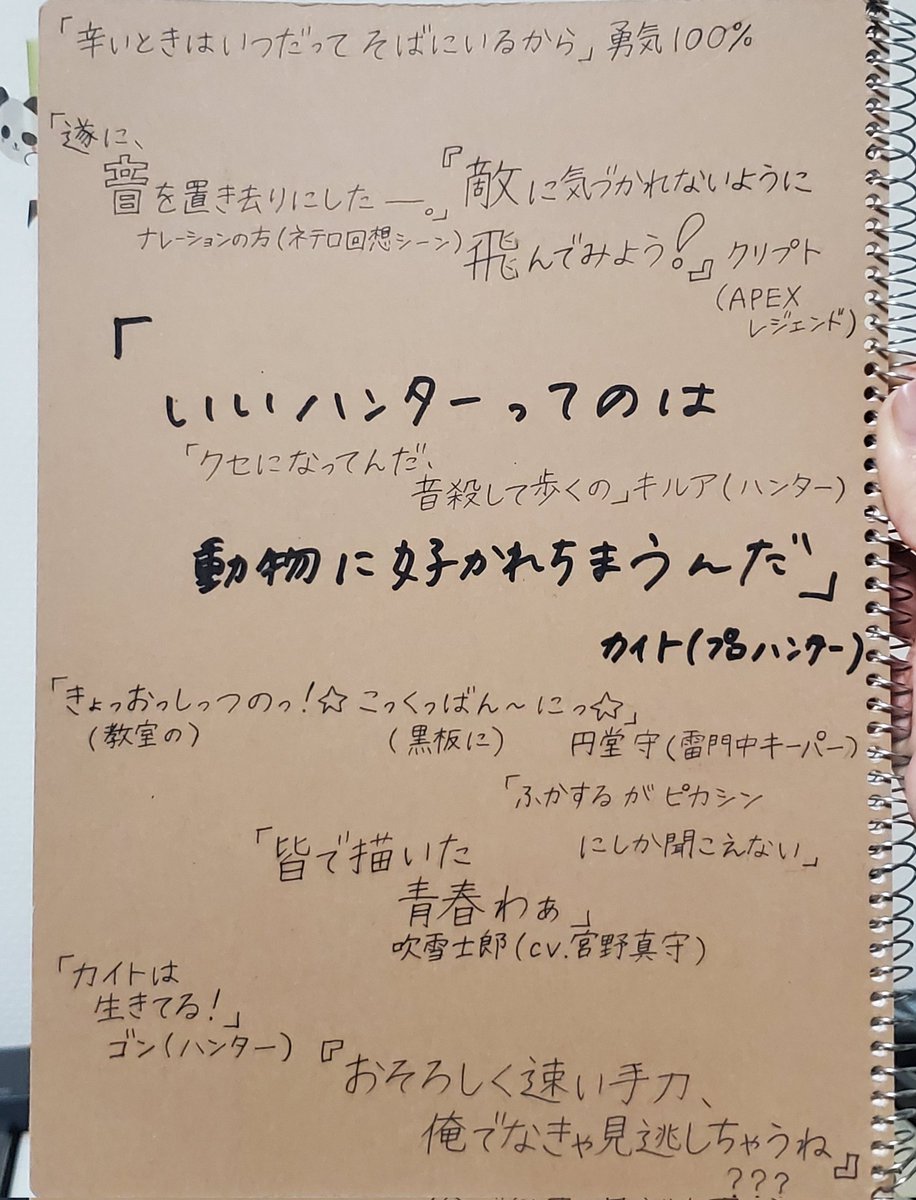 「辛いときはいつだって そばにいるから」勇気100%
「遂に、
音を置き去りにした ―。」
ナレーションの方(ネテロ回想シーン)
『敵に気づかれないように
飛んでみよう!』クリプト
(APEX
レジェンド)
「
いいハンターってのは
「クセになってんだ、
音殺して歩くの」キルア(ハンター)
動物に好かれちまうんだ」
カイト(プロハンター)
「きょっおっしっつのっ!☆ こっくっばん~にっ☆」
(教室の) (黒板に) 円堂 守(雷門中キーパー)
「ふかするが ピカシン
にしか聞こえない」
「皆で描いた
青春わぁ」
吹雪士郎(cv.宮野真守)
「カイトは
生きてる!」
ゴン(ハンター)
『おそろしく速い手刀、
俺でなきゃ見逃しちゃうね』
???